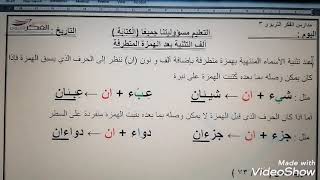 مدارس الفكر التربوي ٣
اليوم :
التعليم مسؤوليتنا جميعًا ( الكتابة )
ألف التثنية بعد الهمزة المتطرفة
الفكر
التاريخ :
عند تثنية الأسماء المنتهية بهمزة متطرفة بإضافة ألف و نون ( ان ) ننظر إلى الحرف الذي يسبق الهمزة فإذا
كان يمكن وصله بما بعده كتبت الهمزة على نبرة
مثل : شيء + ان ← شيئان عبء + ان ← عبئان
اما إذا كان الحرف الذي قبل الهمزة لا يمكن وصله بما بعده بقيت الهمزة منفردة على السطر
مثل : جزء + ان ← جزءان دواء + ان ← دواءان
Made with
VideoShow